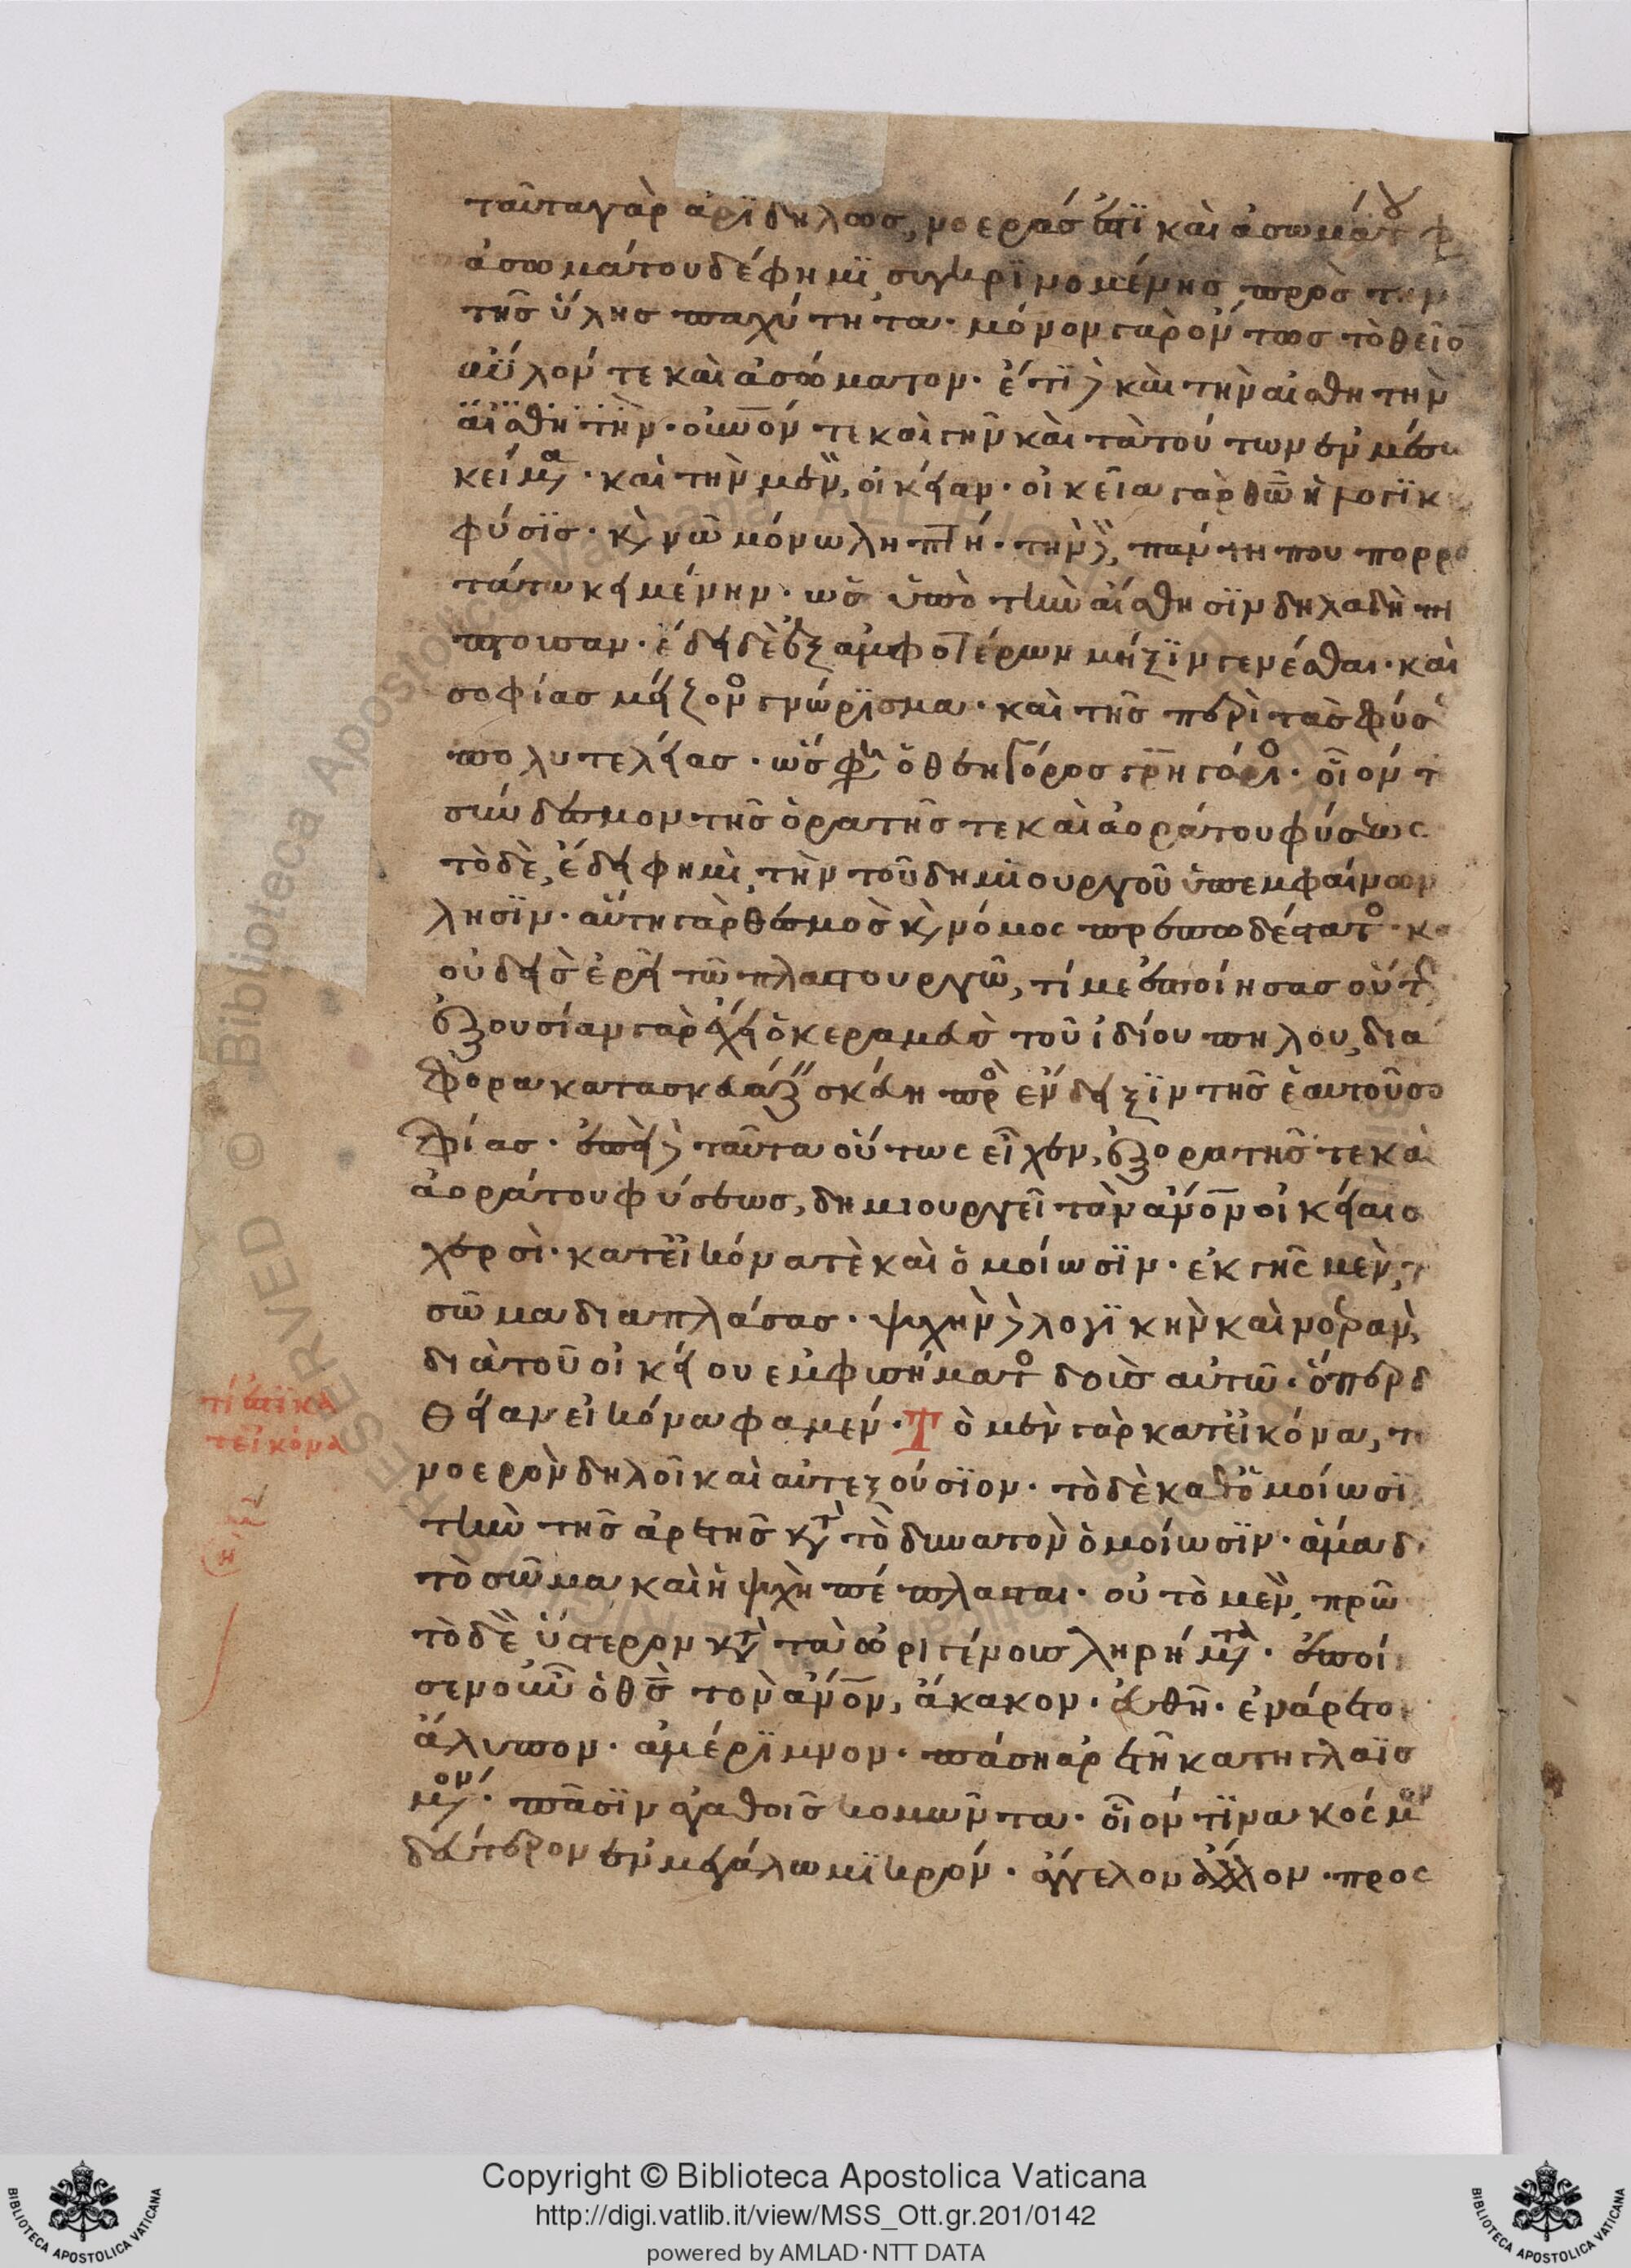 ταῦτα γὰρ ἀριδήλως, νοερᾶς ἐστι καὶ ἀσωμάτου φ
ἀσωμάτου δέ φημι, συγκρινομένης πρὸς τὴν
τῆς ὕλης παχύτητα· μόνον γὰρ ὄντως τὸ θεῖον
ἄϋλόν τε καὶ ἀσώματον· ἔτι δὲ καὶ τὴν αἰσθητὴν
οὐνόν τε καὶ γῆν καὶ τὰ τούτων ἐν μέσω
κείμενα· καὶ τὴν μὲν, οἰκείαν· οἰκεία γὰρ θῶ ἡ λογικ
φύσις· καὶ νῶ μόνω ληπτή· τὴν δὲ, πάντη που πορρω
τάτω κειμένην· ὡς ὑπὸ τὴν αἴσθησιν δηλαδὴ πί
πτουσαν· ἔδει δὲ ἐξ ἀμφοτέρων μίξιν γενέσθαι· καὶ
σοφίας μείζονος γνώρισμα· καὶ τῆς περὶ τὰς φύσεις
πολυτελείας· ὥς φη ὁ θεηγόρος γρηγόριος· οἷόν τ
σύνδεσμον τῆς ὁρατῆς τε καὶ ἀοράτου φύσεως
τὸ δὲ, ἔδει φημὶ, τὴν τοῦ δημιουργοῦ ὑπεμφαίνων
λησιν· αὕτη γὰρ θεσμὸς καὶ νόμος πρεπωδέστατος· κα
οὐδεὶς ἐρεῖ τῶ πλαστουργῶ, τί με ἐποίησας οὕτως
ἐξουσίαν γὰρ ἔχει ὁ κεραμεὺς τοῦ ἰδίου πηλοῦ, διά
φορα κατασκευάζειν σκεύη πρὸς ἔνδειξιν τῆς ἑαυτοῦ σο
φίας· ἐπεὶ δὲ ταῦτα οὕτως εἶχεν, ἐξ ὁρατῆς τε καὶ
ἀοράτου φύσεως, δημιουργεῖ τὸν ἄνον οἰκείαις
χερσὶ· κατ' εἰκόνα τὲ καὶ ὁμοίωσιν· ἐκ γῆς μὲν, τ
σῶμα διαπλάσας· ψυχὴν δὲ λογικὴν καὶ νοερὰν,
διὰ τοῦ οἰκείου ἐμφυσήματος δοὺς αὐτῶ· ὅπερ δ
θείαν εἰκόνα φαμέν· Τὸ μὲν γὰρ κατ' εἰκόνα, τ
νοερὸν δηλοῖ καὶ αὐτεξούσιον· τὸ δὲ καθ' ὁμοίωσι
τὴν τῆς ἀρετῆς κατὰ τὸ δυνατὸν ὁμοίωσιν· ἅμα δ
τὸ σῶμα καὶ ἡ ψυχὴ πέπλασται· οὐ τὸ μὲν, πρῶ
τὸ δὲ ὕστερον κατὰ τὰ ὠριγένους ληρήματα· ἐποί
σεν οὖν ὁ θς τὸν ἄνον, ἄκακον· εὐθῆ· ἐνάρετο
ἄλυπον· ἀμέριμνον· πάση ἀρετῆ κατηγλαϊσ
μένον· πᾶσιν ἀγαθοῖς κομῶντα· οἷόν τινα κόσμον
δεύτερον ἐν μεγάλω μικρόν· ἄγγελον ἄλλον· προς
τί ἐστι κα
τ' εἰκόνα